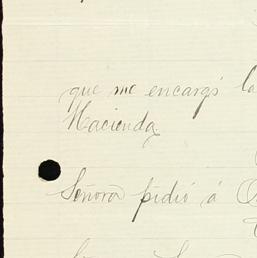 que me encargó la
Hacienda
Señora pidió á